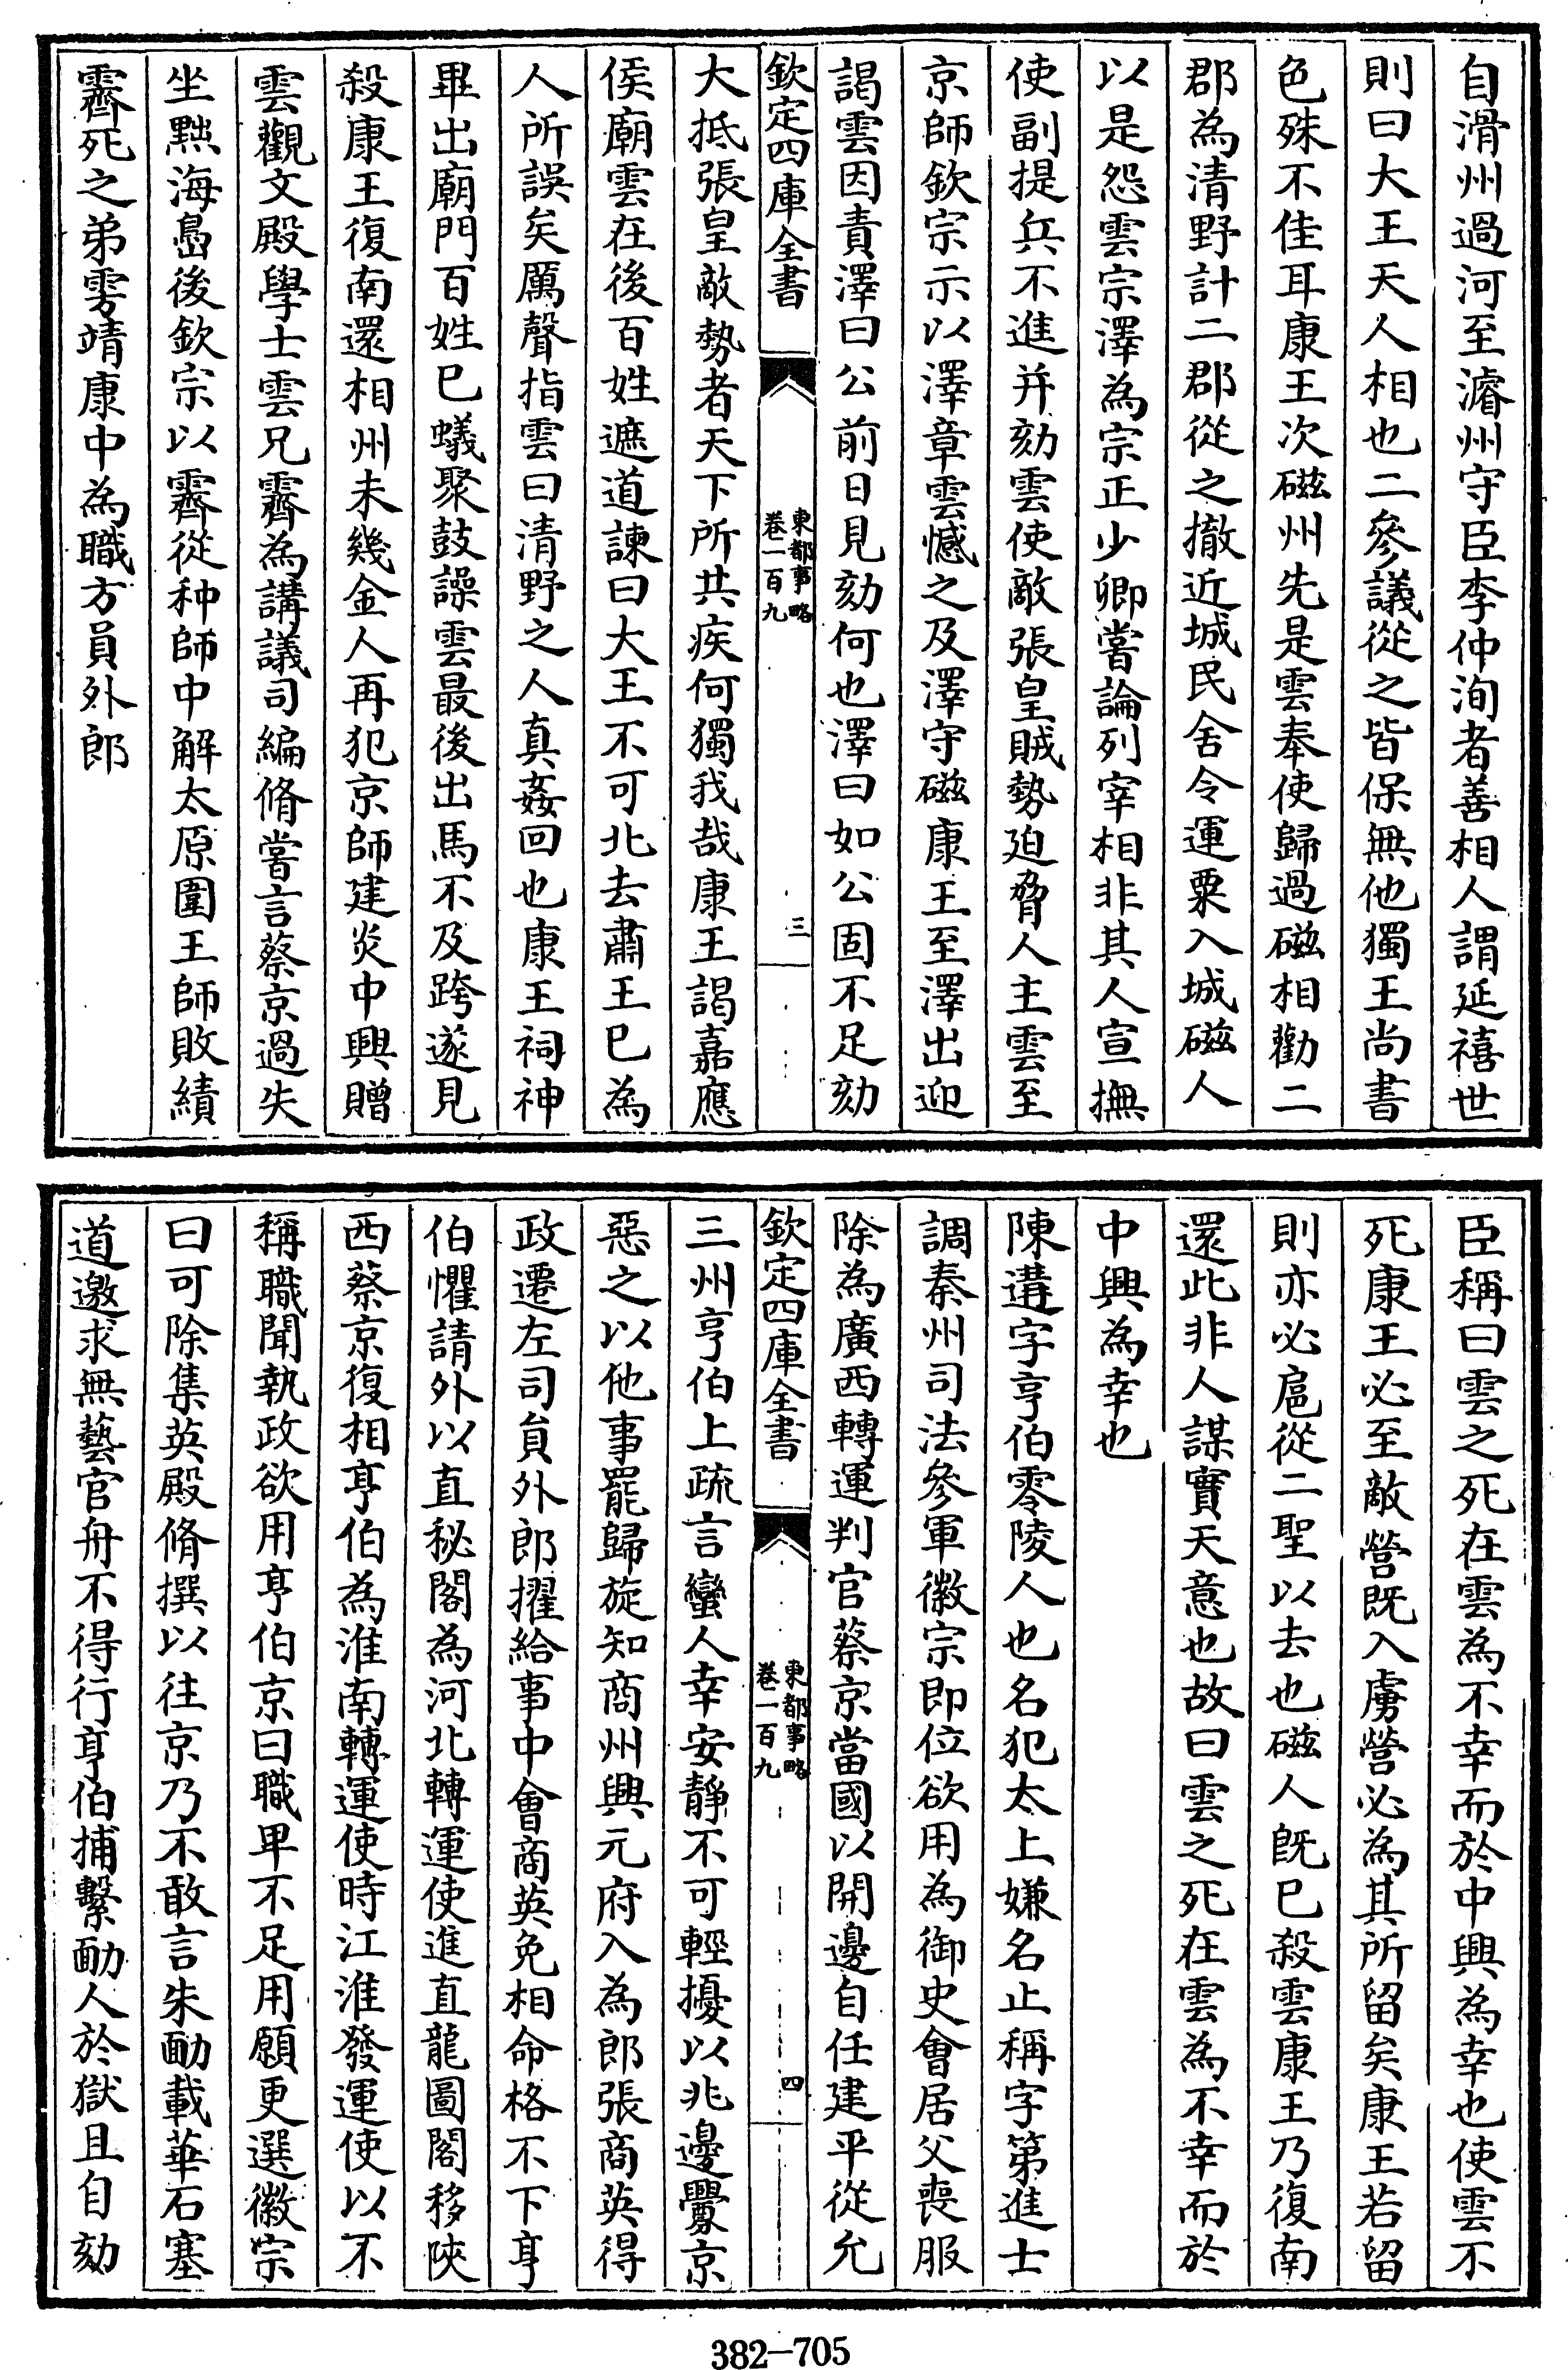 自滑州過河至濬州守臣李仲洵者善相人謂延禧世
則曰大王天人相也二參議從之皆保無他獨王尚書
色殊不佳耳康王次磁州先是雲奉使歸過磁相勸二
郡為清野計二郡從之撤近城民舍令運粟入城磁人
以是怨雲宗澤為宗正少卿嘗論列宰相非其人宣撫
使副提兵不進并劾雲使敵張皇賊勢迫脅人主雲至
京師欽宗示以澤章雲憾之及澤守磁康王至澤出迎
謁雲因責澤曰公前日見劾何也澤曰如公固不足劾
欽定四庫全書
東都事略
卷一百九
三
大抵張皇敵勢者天下所共疾何獨我哉康王謁嘉應
侯廟雲在後百姓遮道諫曰大王不可北去肅王已為
人所誤矣厲聲指雲曰清野之人真姦回也康王祠神
畢出廟門百姓已蟻聚鼓譟雲最後出馬不及跨遂見
殺康王復南還相州未幾金人再犯京師建炎中興贈
雲觀文殿學士雲兄霽為講議司編脩嘗言蔡京過失
坐黥海島後欽宗以霽從种師中解太原圍王師敗績
霽死之弟雱靖康中為職方員外郎
臣稱曰雲之死在雲為不幸而於中興為幸也使雲不
死康王必至敵營既入虜營必為其所留矣康王若留
則亦必扈從二聖以去也磁人既已殺雲康王乃復南
還此非人謀實天意也故曰雲之死在雲為不幸而於
中興為幸也
陳遘字亨伯零陵人也名犯太上嫌名止稱字第進士
調秦州司法參軍徽宗即位欲用為御史會居父喪服
除為廣西轉運判官蔡京當國以開邊自任建平從允
欽定四庫全書
東都事略
卷一百九
四
三州亨伯上疏言蠻人幸安靜不可輕擾以兆邊釁京
惡之以他事罷歸旋知商州興元府入為郎張商英得
政遷左司員外郎擢給事中會商英免相命格不下亨
伯懼請外以直秘閣為河北轉運使進直龍圖閣移陝
西蔡京復相亨伯為淮南轉運使時江淮發運使以不
稱職聞執政欲用亨伯京曰職卑不足用願更選徽宗
曰可除集英殿脩撰以往京乃不敢言朱勔載華石塞
道邀求無藝官舟不得行亨伯捕繫勔人於獄且自劾
382-705